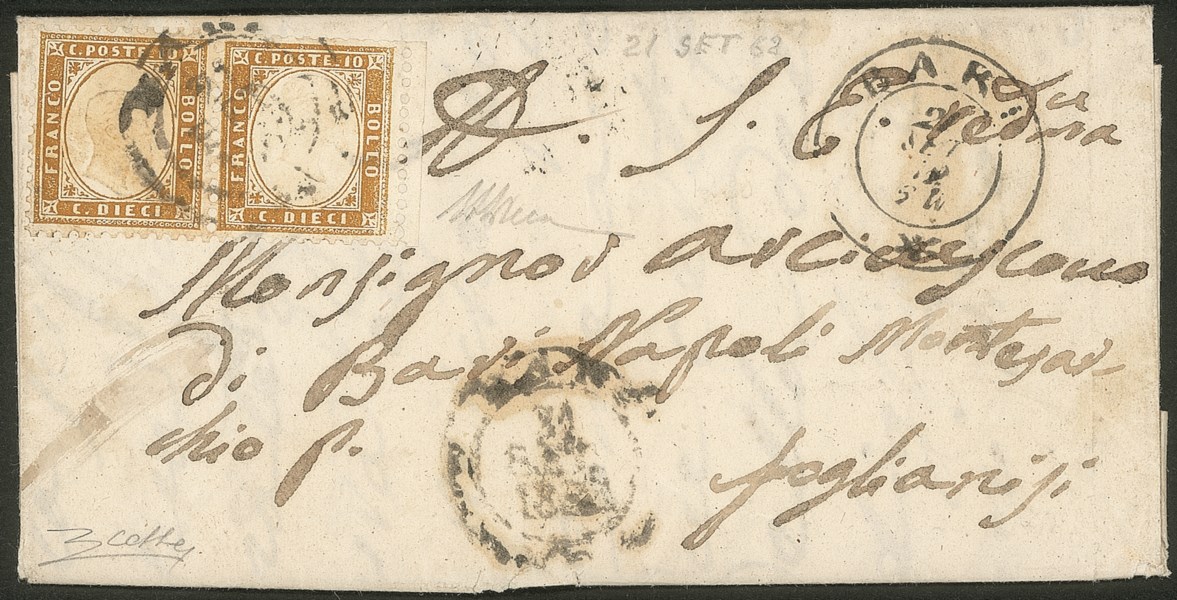 C. POSTE 10 C. POSTE 10
FRANCO BOLLO FRANCO BOLLO
C. DIECI C. DIECI
21 SET 62
BARI
A. S. E. Rev.ma
Monsignor Arcivescovo
di Bari Napoli Montesar-
chio p. foglianisi